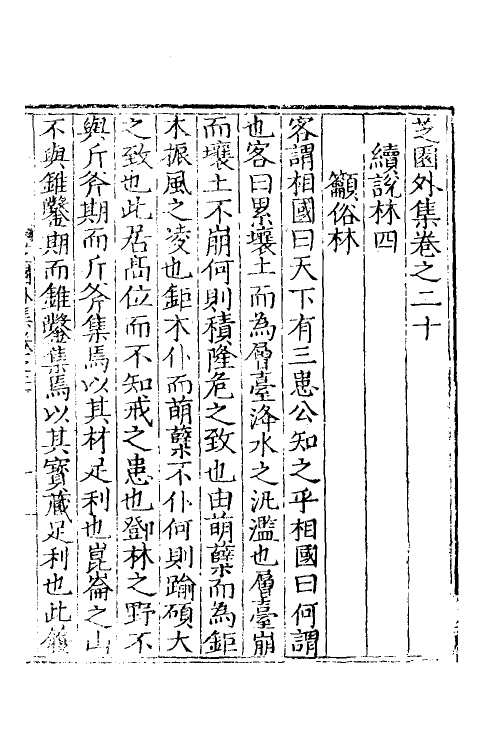 芝園外集卷之二十
續說林四
籲俗林
客謂相國曰天下有三患公知之乎相國曰何謂
也客曰累壤土而為層臺洚水之汎濫也層臺崩
而壤土不崩何則積隆危之致也由萌蘖而為鉅
木振風之凌也鉅木仆而萌蘖不仆何則踰碩大
之致也此居高位而不知戒之患也鄧林之野不
與斤斧期而斤斧集焉以其材足利也崑崙之山
不與錐鑿期而錐鑿集焉以其寶藏足利也此